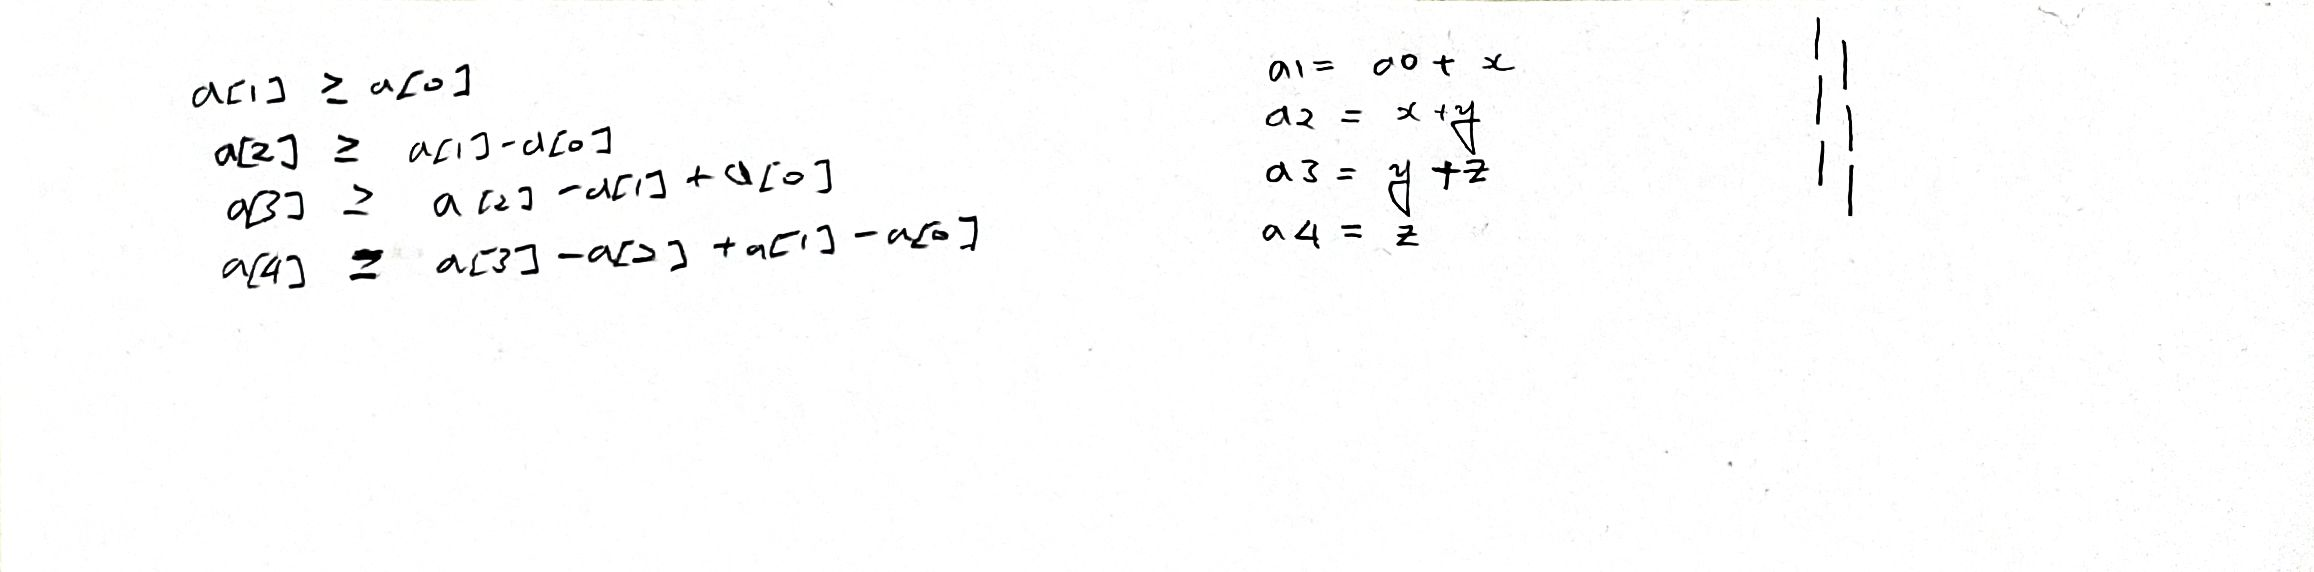 a[1] ≥ a[0]
a[2] ≥ a[1]-a[0]
a[3] ≥ a[2]-a[1]+a[0]
a[4] = a[3]-a[2]+a[1]-a[0]
a1 = a0 + x
a2 = x + y
a3 = y + z
a4 = z